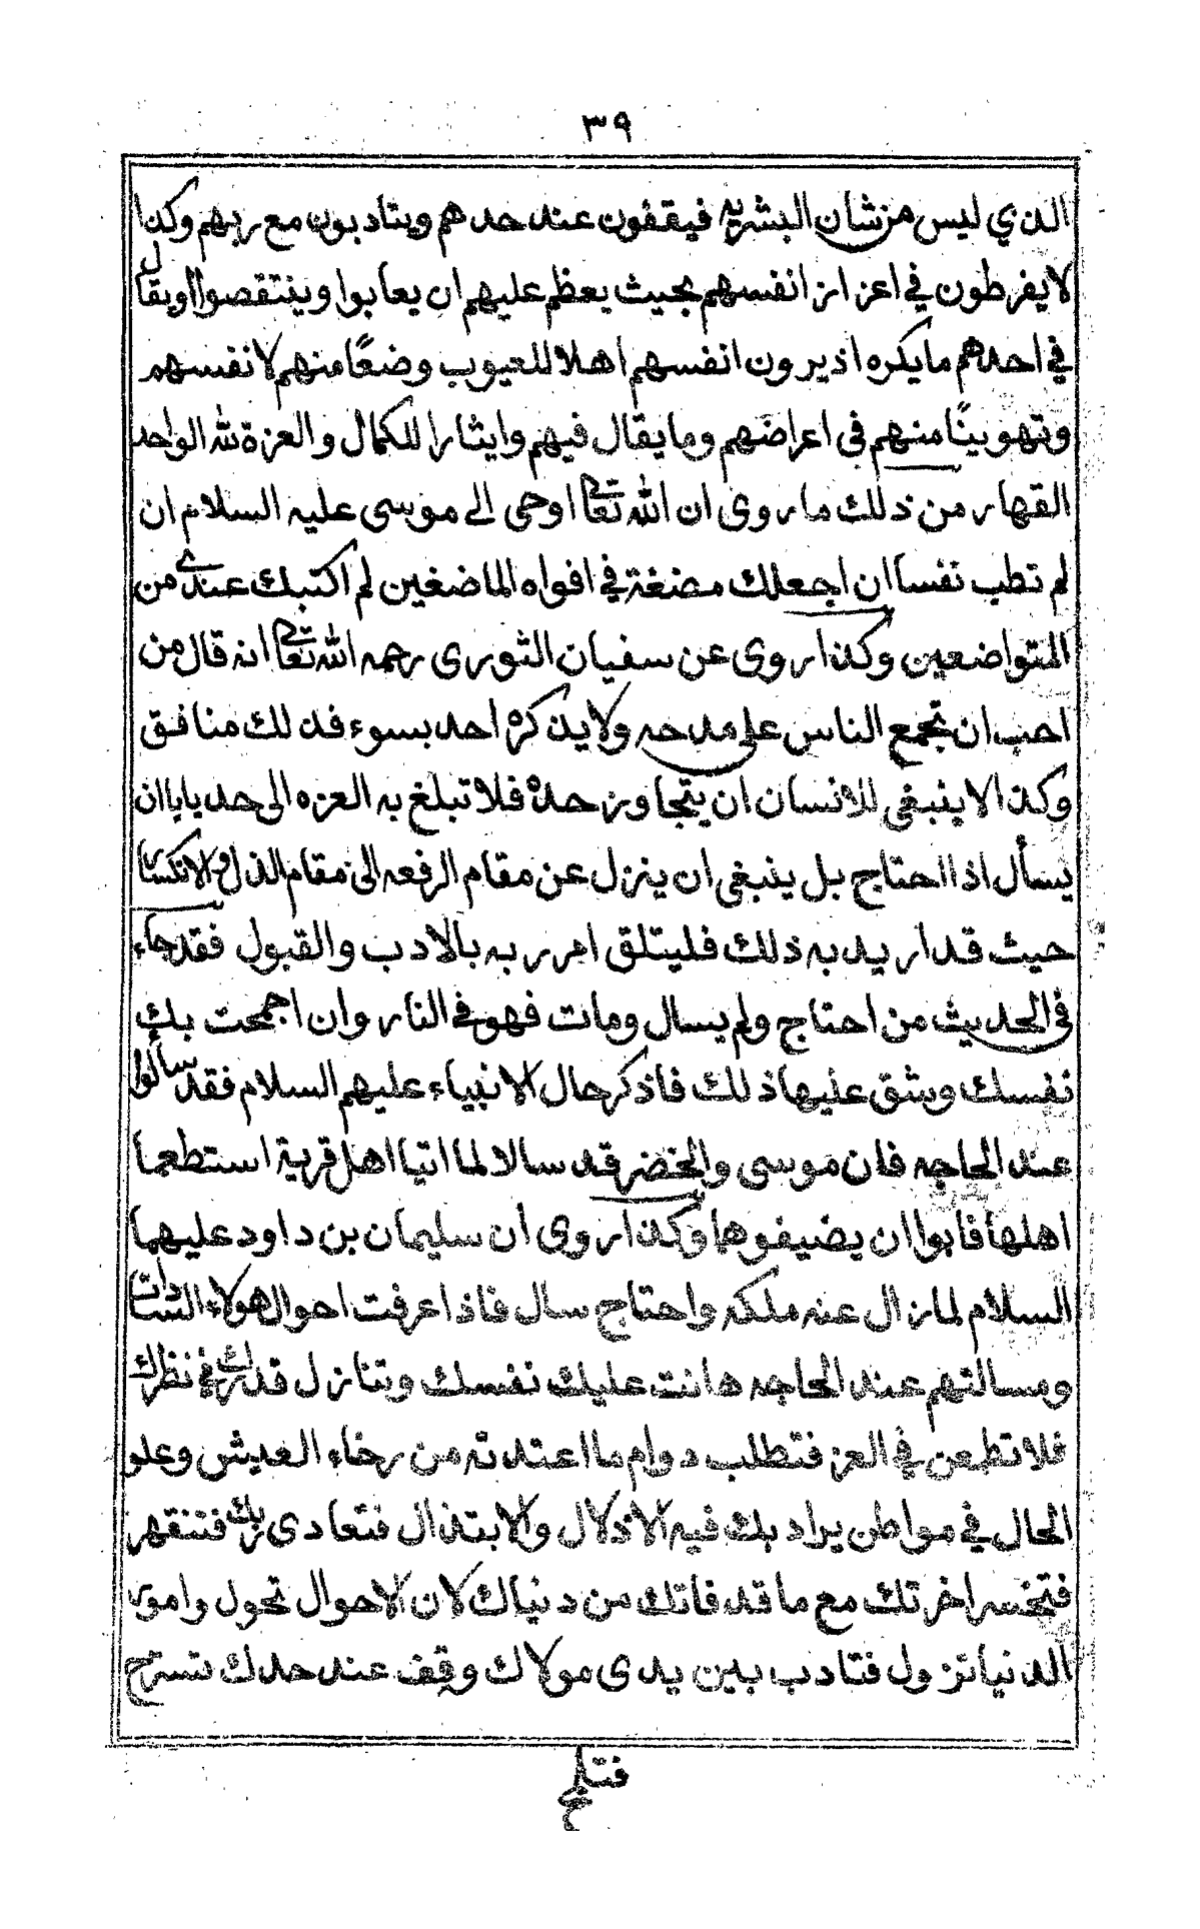 ٣٩
الذي ليس من شان البشريه فيقفون عند حدهم ويتادبون مع ربهم وكذا
لا يفرطون في اعزاز انفسهم بحيث يعظم عليهم ان يعابوا وينتقصوا او يقال
في احدهم ما يكره اذ يرون انفسهم اهلا للعيوب وضعًا منهم لانفسهم
وتهوينًا منهم في اعراضهم وما يقال فيهم وايثارا للكمال والعزة لله الواحد
القهار من ذلك ما روى ان الله تعالى اوحى الى موسى عليه السلام ان
لم تطب نفسا ان اجعلك مضغة في افواه الماضغين لم اكتبك عندي من
المتواضعين وكذا روى عن سفيان الثورى رحمه الله تعالى انه قال من
احب ان تجمع الناس على مدحه ولا يذكره احد بسوء فذلك منافق
وكذا لا ينبغي للانسان ان يتجاوز حده فلا تبلغ به العزه الى حد ياباان
يسأل اذا احتاج بل ينبغي ان ينزل عن مقام الرفعه الى مقام الذل والانكسار
حيث قد اريد به ذلك فليتلق امر ربه بالادب والقبول فقد جاء
في الحديث من احتاج ولم يسال ومات فهو في النار وان اجمحت بك
نفسك وشق عليها ذلك فاذكر حال الانبياء عليهم السلام فقد سألوا
عند الحاجه فان موسى والخضر قد سالا لما اتيا اهل قرية استطعما
اهلها فابوا ان يضيفوهما وكذا روى ان سليمان بن داود عليهما
السلام لما زال عنه ملكه واحتاج سال فاذا عرفت احوال هولاء السادات
ومسالتهم عند الحاجه هانت عليك نفسك وتنازل قدرك في نظرك
فلا تطمعن في العز فتطلب دوام ما اعتدته من رخاء العيش وعلو
الحال في مواطن يراد بك فيه الاذلال والابتذال فتعادى ربك فتنقهر
فتخسر اخرتك مع ما قد فاتك من دنياك لان الاحوال تحول وامور
الدنيا تزول فتادب بين يدى مولاك وقف عند حدك تسترح
فتلج